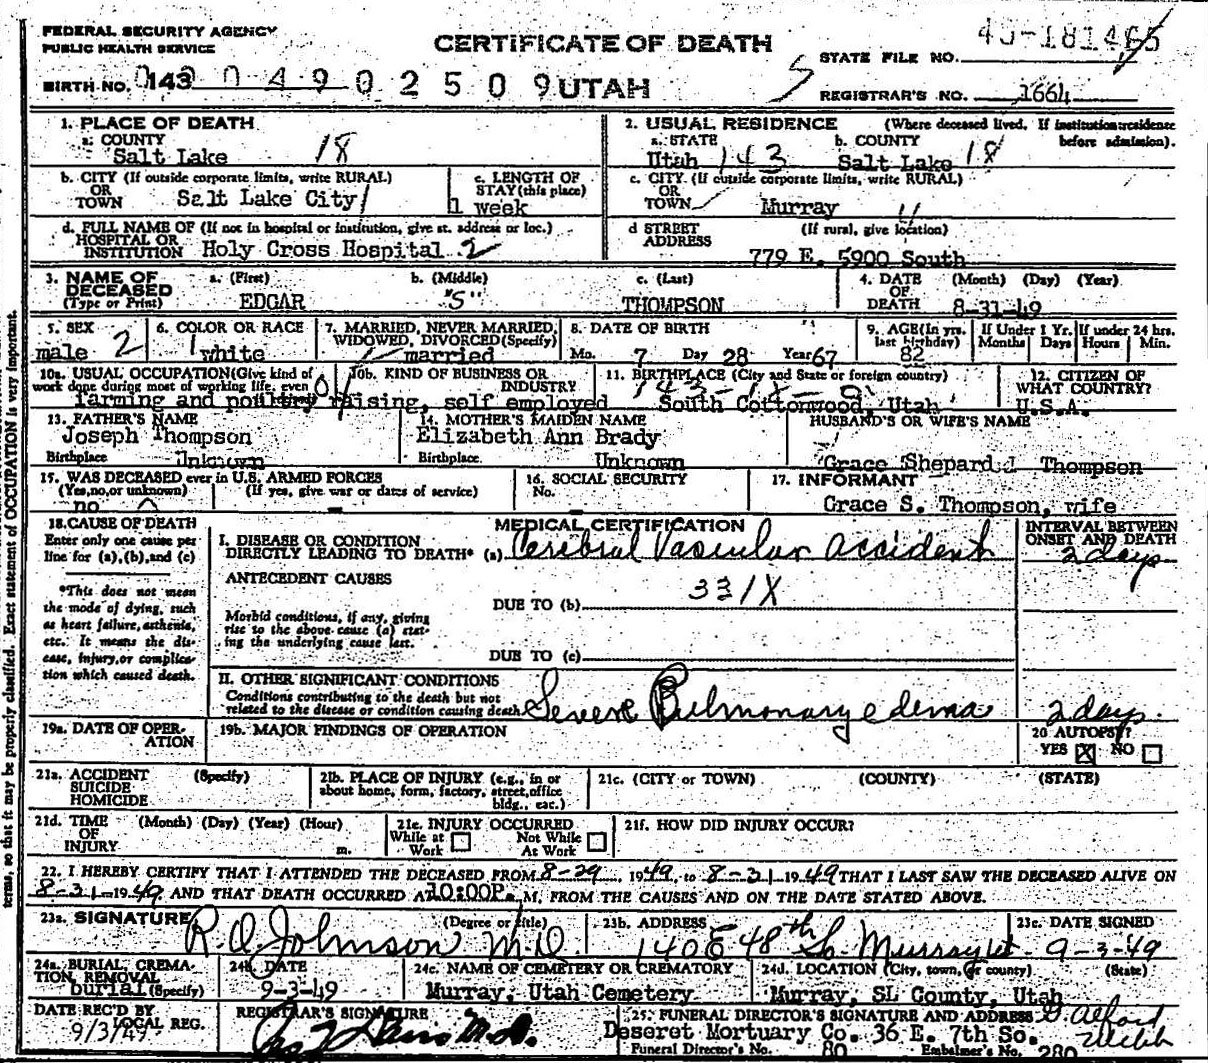 FEDERAL SECURITY AGENCY
PUBLIC HEALTH SERVICE
CERTIFICATE OF DEATH
STATE FILE NO.
BIRTH NO. 143 0 4 9 0 2 5 0 9 UTAH
REGISTRAR'S NO. 1664
1. PLACE OF DEATH
a. COUNTY
Salt Lake 18
2. USUAL RESIDENCE (Where deceased lived. If institution: residence before admission).
a. STATE b. COUNTY
Utah 143 Salt Lake 18
b. CITY (If outside corporate limits, write RURAL)
OR
TOWN Salt Lake City
c. LENGTH OF
STAY (this place)
1 week
c. CITY (If outside corporate limits, write RURAL)
OR
TOWN Murray
d. FULL NAME OF (If not in hospital or institution, give st. address or loc.)
HOSPITAL OR
INSTITUTION Holy Cross Hospital 2
d STREET (If rural, give location)
ADDRESS
779 E. 5900 South
3. NAME OF
DECEASED
(Type or Print)
a. (First) b. (Middle) c. (Last)
EDGAR "S" THOMPSON
4. DATE (Month) (Day) (Year)
OF
DEATH 8-31-49
5. SEX
male 2
6. COLOR OR RACE
1 white
7. MARRIED, NEVER MARRIED,
WIDOWED, DIVORCED (Specify)
married
8. DATE OF BIRTH
Mo. 7 Day 28 Year 67
9. AGE (In yrs.
last birthday)
82
If Under 1 Yr.
Months Days
If under 24 hrs.
Hours Min.
10a. USUAL OCCUPATION (Give kind of
work done during most of working life, even
10b. KIND OF BUSINESS OR
INDUSTRY
farming and poultry raising, self employed
11. BIRTHPLACE (City and State or foreign country)
South Cottonwood, Utah
12. CITIZEN OF
WHAT COUNTRY?
U.S.A.
13. FATHER'S NAME
Joseph Thompson
Birthplace Unknown
14. MOTHER'S MAIDEN NAME
Elizabeth Ann Brady
Birthplace. Unknown
HUSBAND'S OR WIFE'S NAME
Grace Shepard Thompson
15. WAS DECEASED ever in U.S. ARMED FORCES
(Yes, no, or unknown) (If yes, give war or dates of service)
no -
16. SOCIAL SECURITY
No. -
17. INFORMANT
Grace S. Thompson, wife
18. CAUSE OF DEATH
Enter only one cause per
line for (a), (b), and (c)
*This does not mean
the mode of dying, such
as heart failure, asthenia,
etc. It means the dis-
ease, injury, or complica-
tion which caused death.
MEDICAL CERTIFICATION
INTERVAL BETWEEN
ONSET AND DEATH
I. DISEASE OR CONDITION
DIRECTLY LEADING TO DEATH* (a) Cerebral Vascular accident 2 days
ANTECEDENT CAUSES
331X
DUE TO (b)
Morbid conditions, if any, giving
rise to the above cause (a) stat-
ing the underlying cause last.
DUE TO (c)
II. OTHER SIGNIFICANT CONDITIONS
Conditions contributing to the death but not
related to the disease or condition causing death. Severe Pulmonary edema 2 days.
19a. DATE OF OPER-
ATION
19b. MAJOR FINDINGS OF OPERATION
20 AUTOPSY?
YES X NO
21a. ACCIDENT (Specify)
SUICIDE
HOMICIDE
21b. PLACE OF INJURY (e.g., in or
about home, form, factory, street, office
bldg., etc.)
21c. (CITY or TOWN) (COUNTY) (STATE)
21d. TIME (Month) (Day) (Year) (Hour)
OF
INJURY m.
21e. INJURY OCCURRED
While at Work Not While At Work
21f. HOW DID INJURY OCCUR?
22. I HEREBY CERTIFY THAT I ATTENDED THE DECEASED FROM 8-29, 1949, to 8-31, 1949 THAT I LAST SAW THE DECEASED ALIVE ON
8-31-1949, AND THAT DEATH OCCURRED AT 10:00P. M., FROM THE CAUSES AND ON THE DATE STATED ABOVE.
23a. SIGNATURE (Degree or title)
R. O. Johnson M.D.
23b. ADDRESS
140 E 48th So. Murray Ut.
23c. DATE SIGNED
9-3-49
24a. BURIAL, CREMA-
TION, REMOVAL
burial (Specify)
24b. DATE
9-3-49
24c. NAME OF CEMETERY OR CREMATORY
Murray, Utah Cemetery
24d. LOCATION (City, town, or county) (State)
Murray, SL County, Utah
DATE REC'D BY
LOCAL REG.
9/3/49
REGISTRAR'S SIGNATURE
M.D.
25. FUNERAL DIRECTOR'S SIGNATURE AND ADDRESS
Deseret Mortuary Co. 36 E. 7th So.
Funeral Director's No. 80 Embalmer's No. 280
terms, so that it may be properly classified. Exact statement of OCCUPATION is very important.